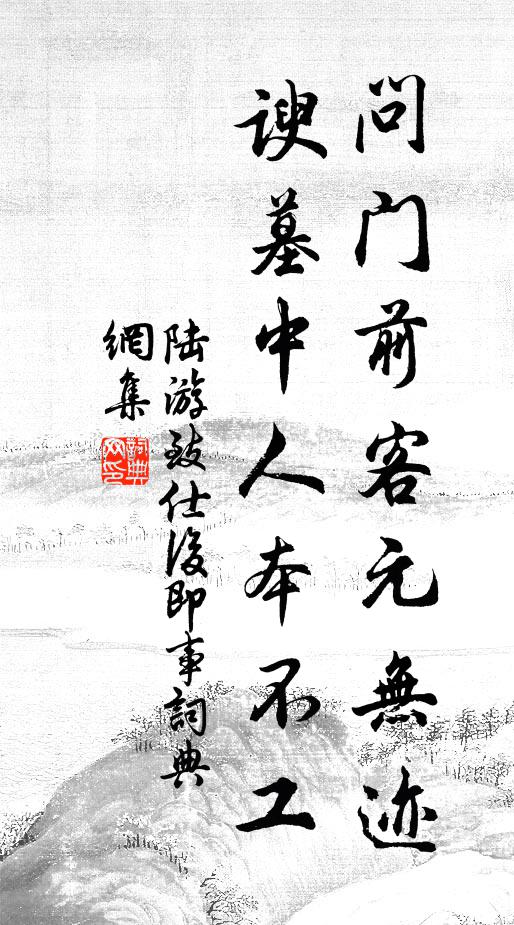 问门前客元無迹
谀墓中人本不工
陆游致仕後即事詞典
網集
詞典
网印